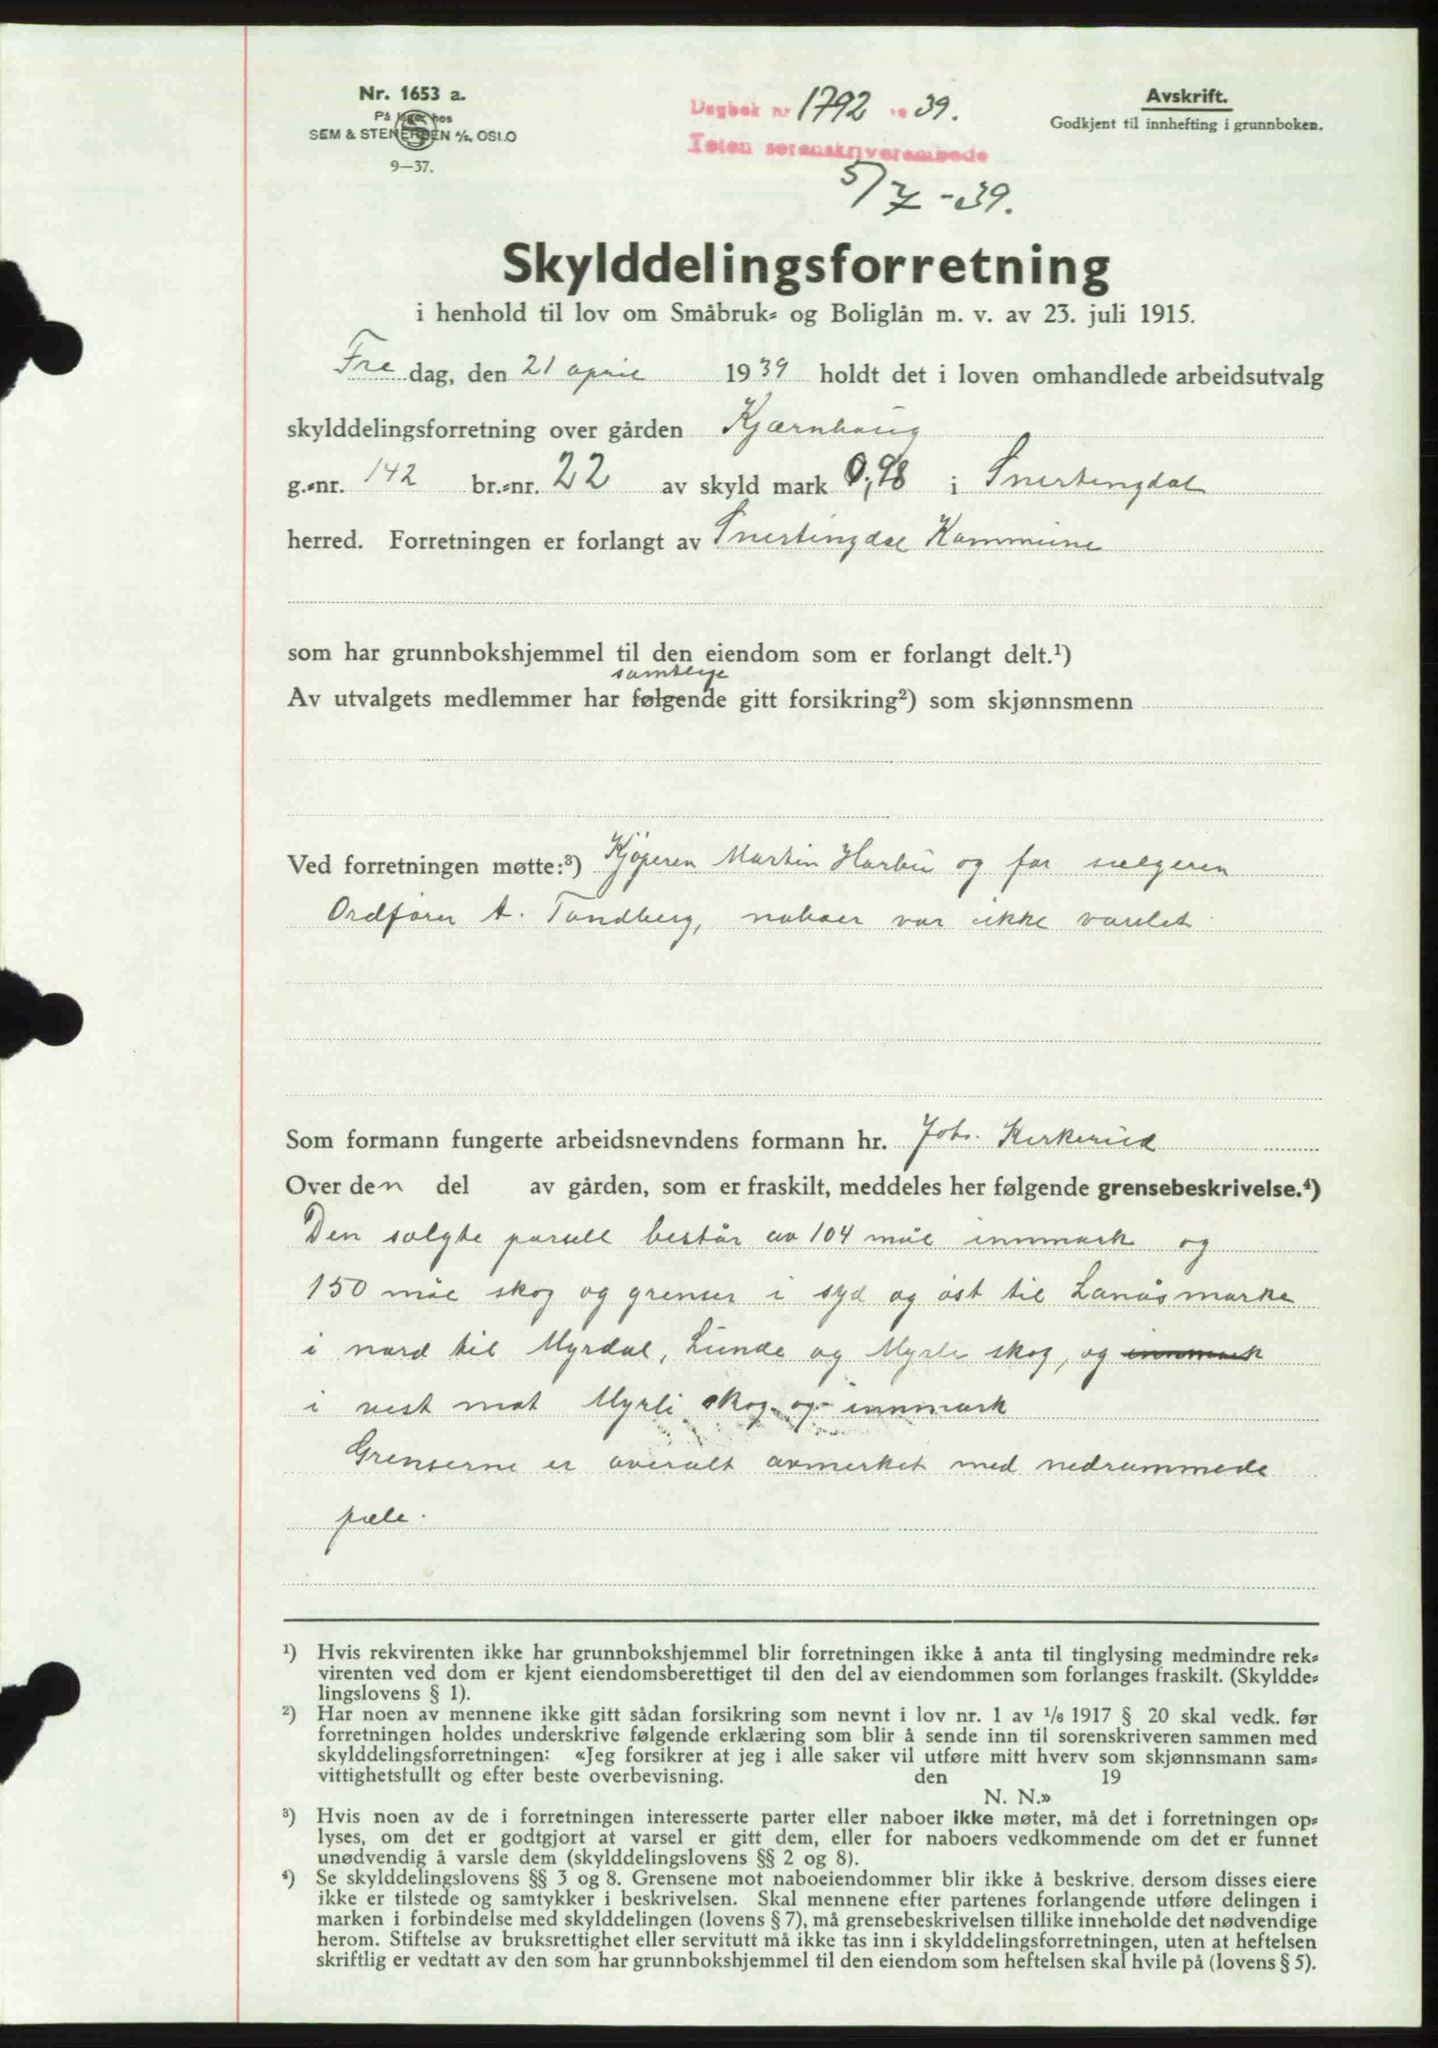 Nr. 1653 a.
På lager hos
SEM & STENERSEN A/S, OSLO
9—37.
Dagbok nr 1792 19 39.
Toten sorenskriverembede
5/7 - 39.
Avskrift.
Godkjent til innhefting i grunnboken.
Skylddelingsforretning
i henhold til lov om Småbruk- og Boliglån m. v. av 23. juli 1915.
Fre dag, den 21 april 1939 holdt det i loven omhandlede arbeidsutvalg
skylddelingsforretning over gården Kjærnhaug
g.-nr. 142 br.-nr. 22 av skyld mark 0,98 i Snertingdal
herred. Forretningen er forlangt av Snertingdal Kommune
som har grunnbokshjemmel til den eiendom som er forlangt delt.¹)
samtlige
Av utvalgets medlemmer har følgende gitt forsikring²) som skjønnsmenn
Ved forretningen møtte:³) Kjøperen Martin Harbu og for selgeren
Ordfører A. Tandberg, naboer var ikke varslet
Som formann fungerte arbeidsnevndens formann hr. Johs. Kirkerud
Over den del av gården, som er fraskilt, meddeles her følgende grensebeskrivelse.⁴)
Den solgte parsell består av 104 mål innmark og
150 mål skog og grenser i syd og øst til Lanåsmarka
i nord til Myrdal, Lunde og Myrli skog, og innmark
i vest mot Myrli skog og innmark
Grenserne er overalt avmerket med nedrammede
pæle.
¹) Hvis rekvirenten ikke har grunnbokshjemmel blir forretningen ikke å anta til tinglysing medmindre rek-
virenten ved dom er kjent eiendomsberettiget til den del av eiendommen som forlanges fraskilt. (Skyldde-
lingslovens § 1).
²) Har noen av mennene ikke gitt sådan forsikring som nevnt i lov nr. 1 av 1/6 1917 § 20 skal vedk. før
forretningen holdes underskrive følgende erklæring som blir å sende inn til sorenskriveren sammen med
skylddelingsforretningen: «Jeg forsikrer at jeg i alle saker vil utføre mitt hverv som skjønnsmann sam-
vittighetsfullt og efter beste overbevisning. den 19
N. N.»
³) Hvis noen av de i forretningen interesserte parter eller naboer ikke møter, må det i forretningen op-
lyses, om det er godtgjort at varsel er gitt dem, eller for naboers vedkommende om det er funnet
unødvendig å varsle dem (skylddelingslovens §§ 2 og 8).
⁴) Se skylddelingslovens §§ 3 og 8. Grensene mot naboeiendommer blir ikke å beskrive, dersom disses eiere
ikke er tilstede og samtykker i beskrivelsen. Skal mennene efter partenes forlangende utføre delingen i
marken i forbindelse med skylddelingen (lovens § 7), må grensebeskrivelsen tillike inneholde det nødvendige
herom. Stiftelse av bruksrettighet eller servitutt må ikke tas inn i skylddelingsforretningen, uten at heftelsen
skriftlig er vedtatt av den som har grunnbokshjemmel til den eiendom som heftelsen skal hvile på (lovens § 5).